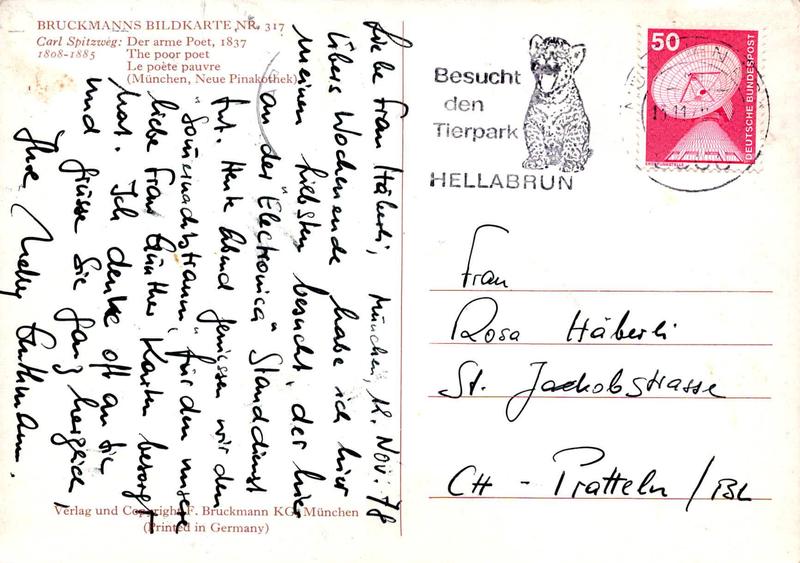 BRUCKMANNS BILDKARTE NR. 317
Carl Spitzweg: Der arme Poet, 1837
1808-1885 The poor poet
Le poète pauvre
(München, Neue Pinakothek)
München, 12. Nov. 78
Liebe Frau Häberli,
Übers Wochenende habe ich hier
meinen Liebsten besucht, der hier
an der "Electronica" Standdienst
tut. Heute Abend geniessen wir den
"Sommernachtstraum", für den unsere
liebe Frau Günther Karten besorgt
hat. Ich denke oft an Sie
und grüsse Sie ganz herzlich,
Ihre Nelly
Verlag und Copyright F. Bruckmann KG, München
(Printed in Germany)
Besucht
den
Tierpark
HELLABRUN
50
DEUTSCHE BUNDESPOST
Frau
Rosa Häberli
St. Jackobstrasse
CH - Pratteln / BL